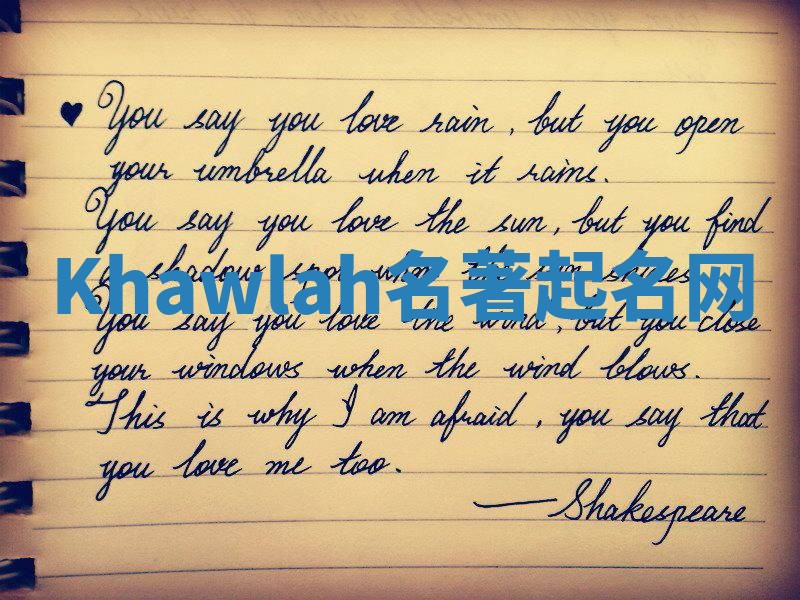 ♥ You say you love rain, but you open
your umbrella when it rains.
You say you love the sun, but you find
a shadow spot when the sun shines.
Khawlah名著起名网
You say you love the wind, but you close
your windows when the wind blows.
This is why I am afraid, you say that
you love me too.
— Shakespeare